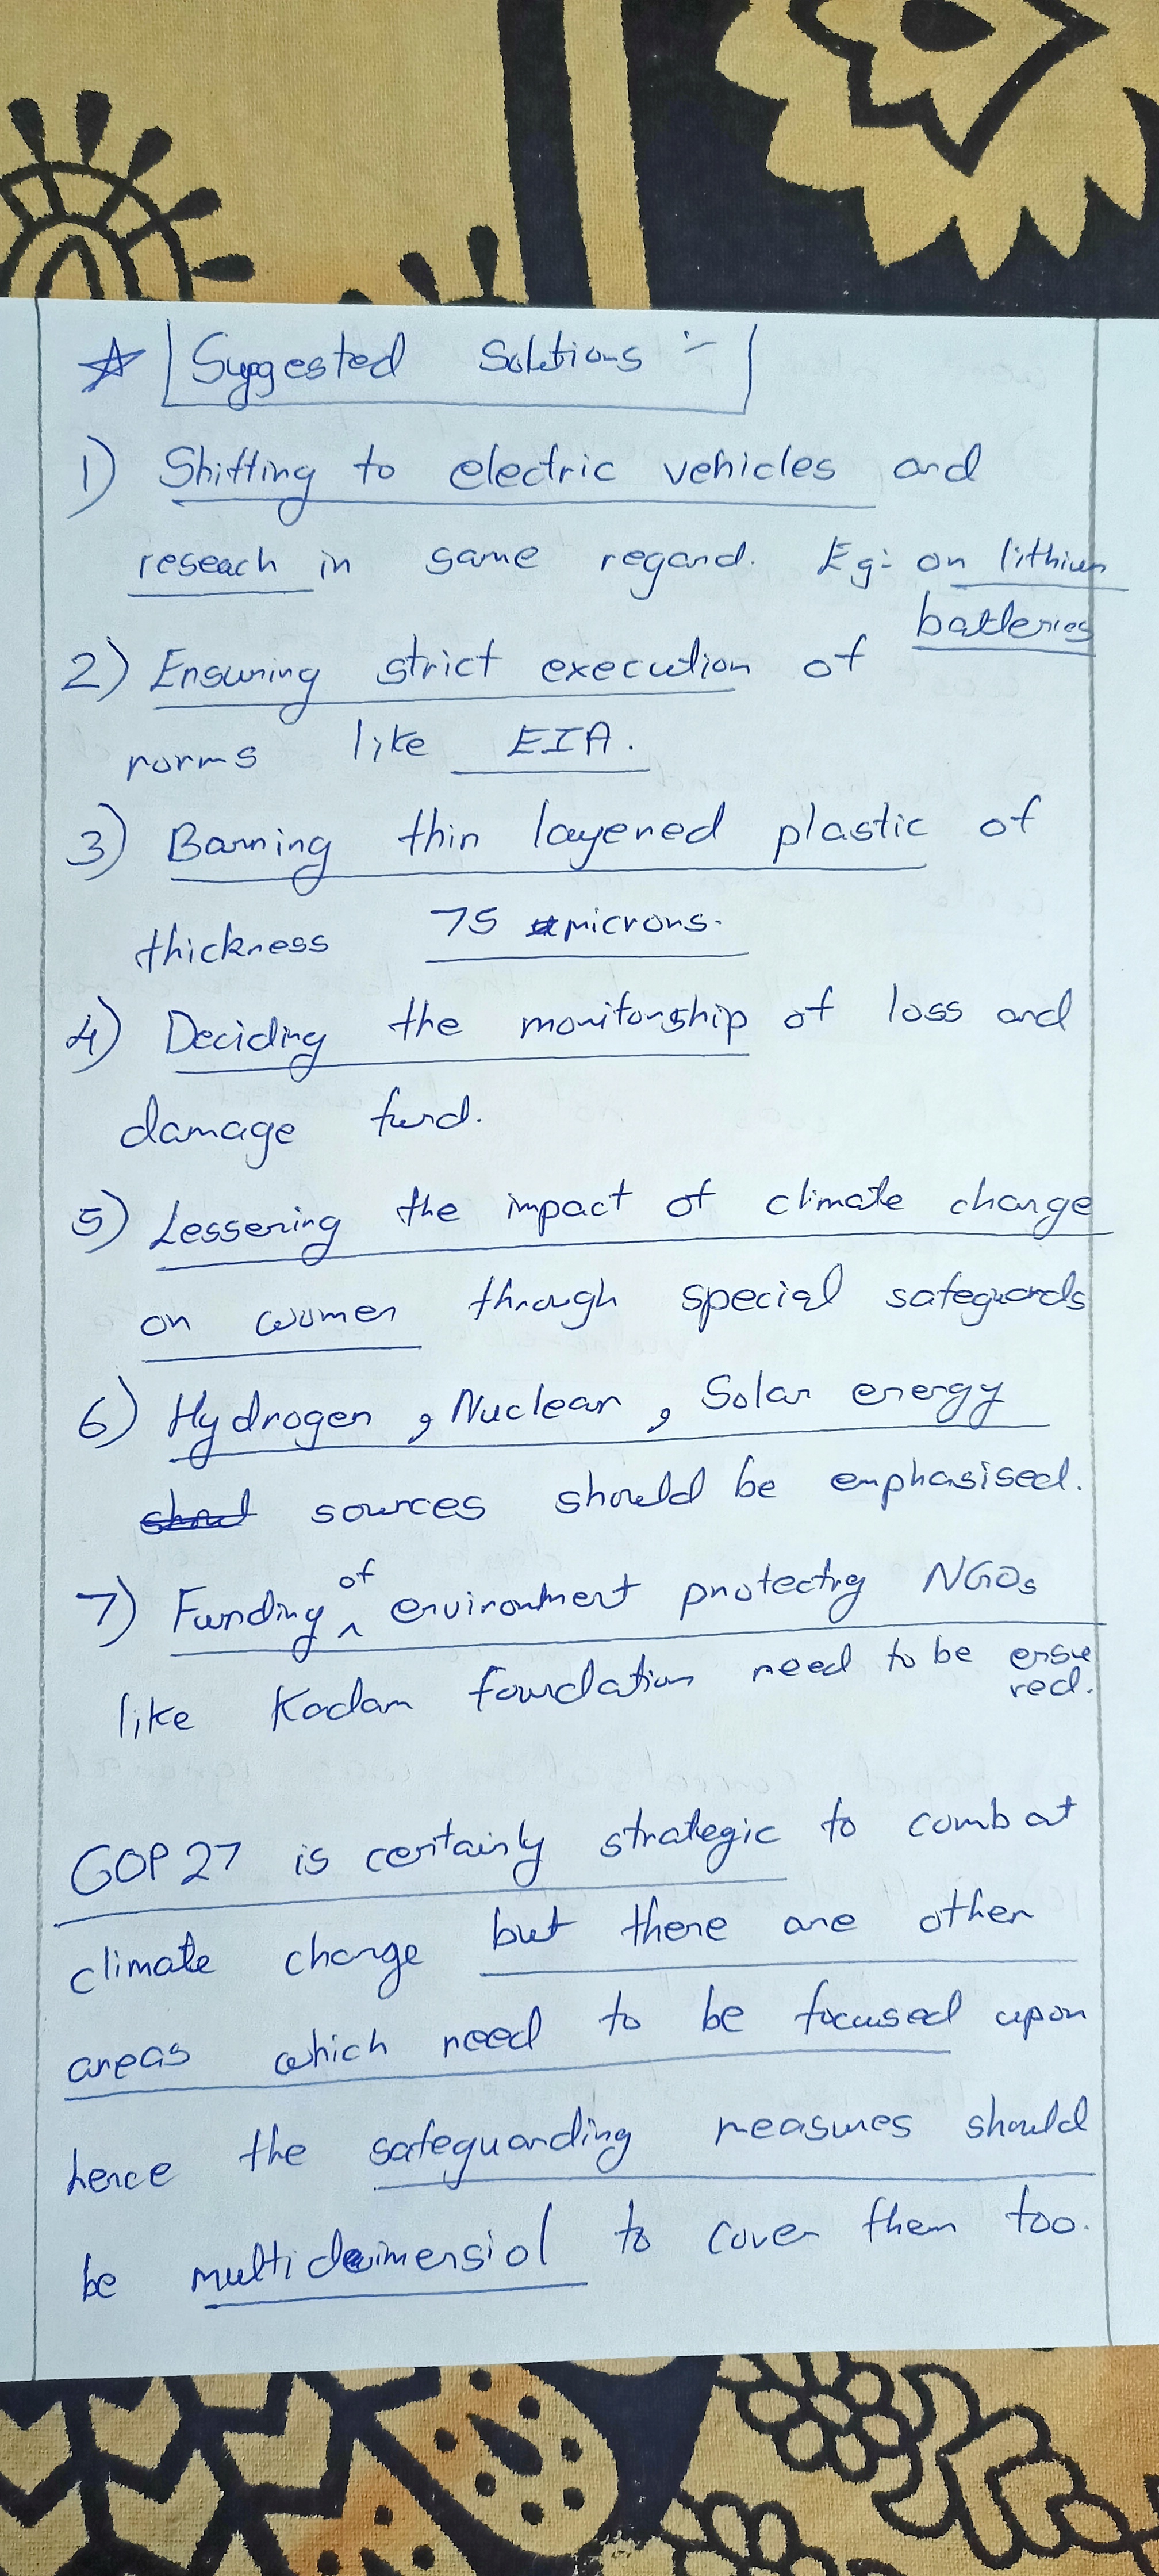 ☆ Suggested Solutions :-
1) Shifting to electric vehicles and
reseach in same regard. Eg:- on lithium
batteries
2) Ensuring strict execution of
norms like EIA.
3) Banning thin layered plastic of
thickness 75 microns.
4) Deciding the monitorship of loss and
damage fund.
5) Lessening the impact of climate change
on women through special safeguards
6) Hydrogen, Nuclear, Solar energy
sources should be emphasised.
7) Funding of environment protecting NGOs
like Kadam foundation need to be ensu
red.
COP 27 is certainly strategic to combat
climate change but there are other
areas which need to be focused upon
hence the safeguarding measures should
be multidimensiol to cover them too.